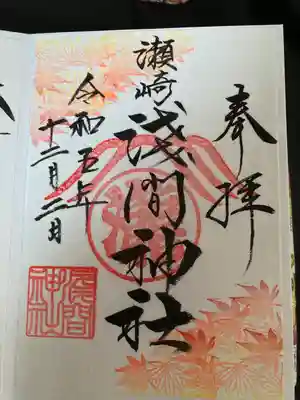 奉拝
瀬崎
浅間神社
令和五年
十二月二日
浅間
神社